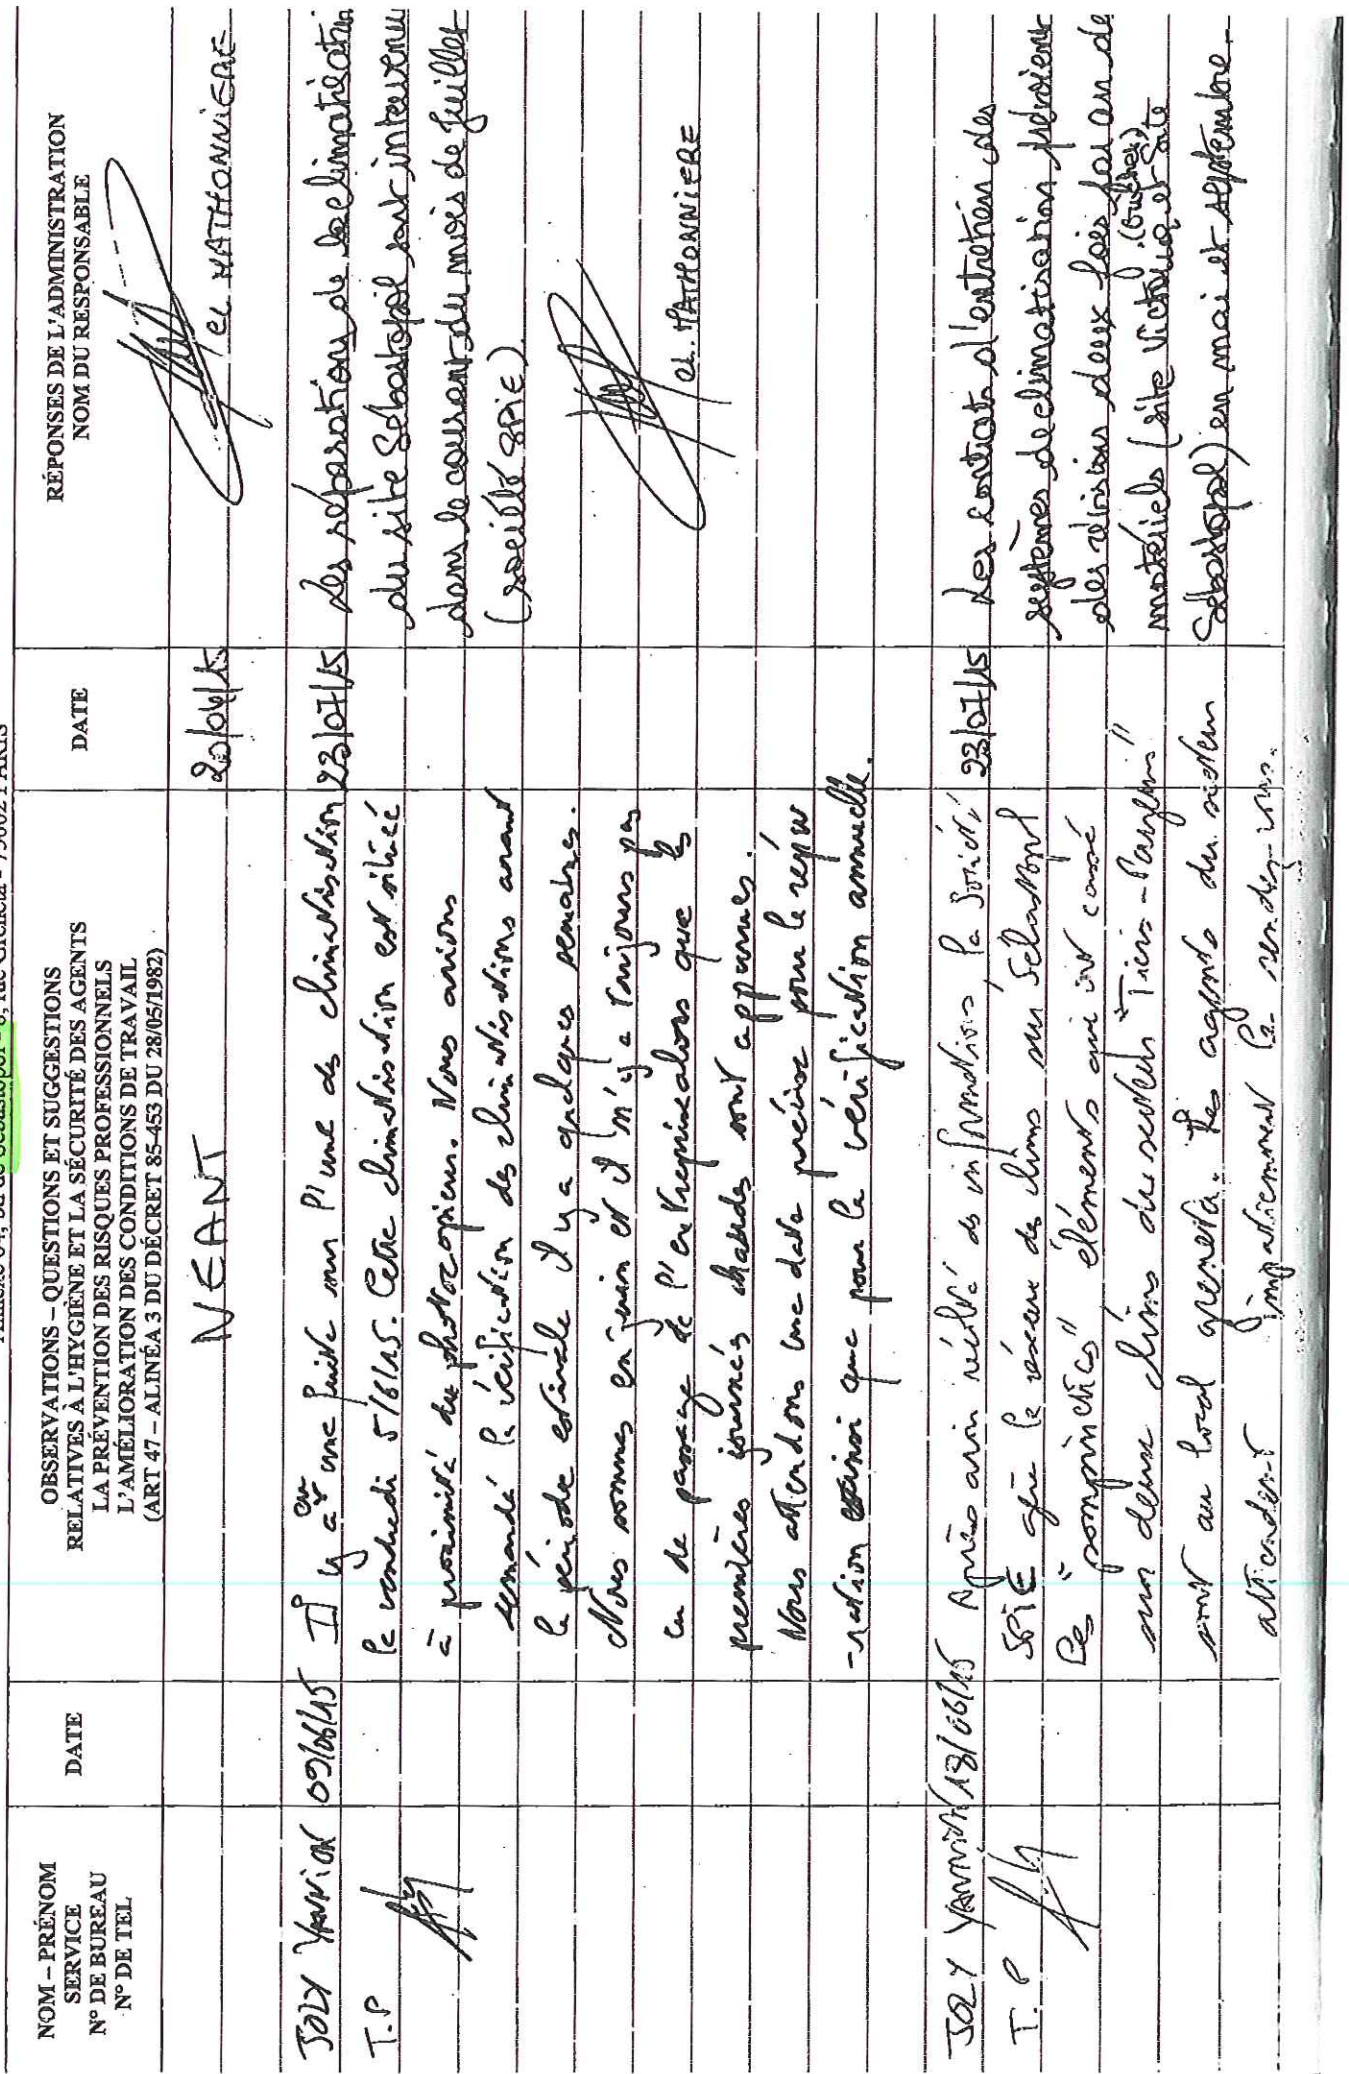 Sébastopol - 6, rue Greneta - 75002 PARIS
NOM – PRÉNOM
SERVICE
N° DE BUREAU
N° DE TEL
DATE
OBSERVATIONS – QUESTIONS ET SUGGESTIONS
RELATIVES À L'HYGIÈNE ET LA SÉCURITÉ DES AGENTS
LA PRÉVENTION DES RISQUES PROFESSIONNELS
L'AMÉLIORATION DES CONDITIONS DE TRAVAIL
(ART 47 – ALINÉA 3 DU DÉCRET 85-453 DU 28/05/1982)
DATE
RÉPONSES DE L'ADMINISTRATION
NOM DU RESPONSABLE
NEANT
20/04/15
MATHONNIERE
JOLY YANNICK
T.P
09/06/15
Il y a eu une fuite sur l'une des climatisation
le vendredi 5/6/15. Cette climatisation est située
à proximité du photocopieur. Nous avions
demandé la vérification des climatisations avant
la période estivale il y a quelques semaines.
Nous sommes en juin et il n'y a toujours pas
eu de passage de l'entreprise alors que les
premières journées chaudes sont apparues.
Nous attendons une date précise pour la répa
-ration ainsi que pour la vérification annuelle.
23/07/15
Les réparations de la climatisation
du site Sébastopol sont intervenu
dans le courant du mois de juillet
(société SPIE)
cl. MATHONNIERE
JOLY YANNICK
T.P
18/06/15
Après avoir récolté des informations, la Société
SPIE gère le réseau de clims sur Sébastopol
Les éléments qui ont cassé
sur deux clims du secteur "Tiers-Payeurs"
sont au local greneta. Les agents du secteur
attendent impatiemment le rendez-vous.
23/07/15
Les contrats d'entretien des
systèmes de climatisation prévoient
des révisions deux fois par an de
matériels (site Victoire, et Sote
Sébastopol) en mai et septembre.